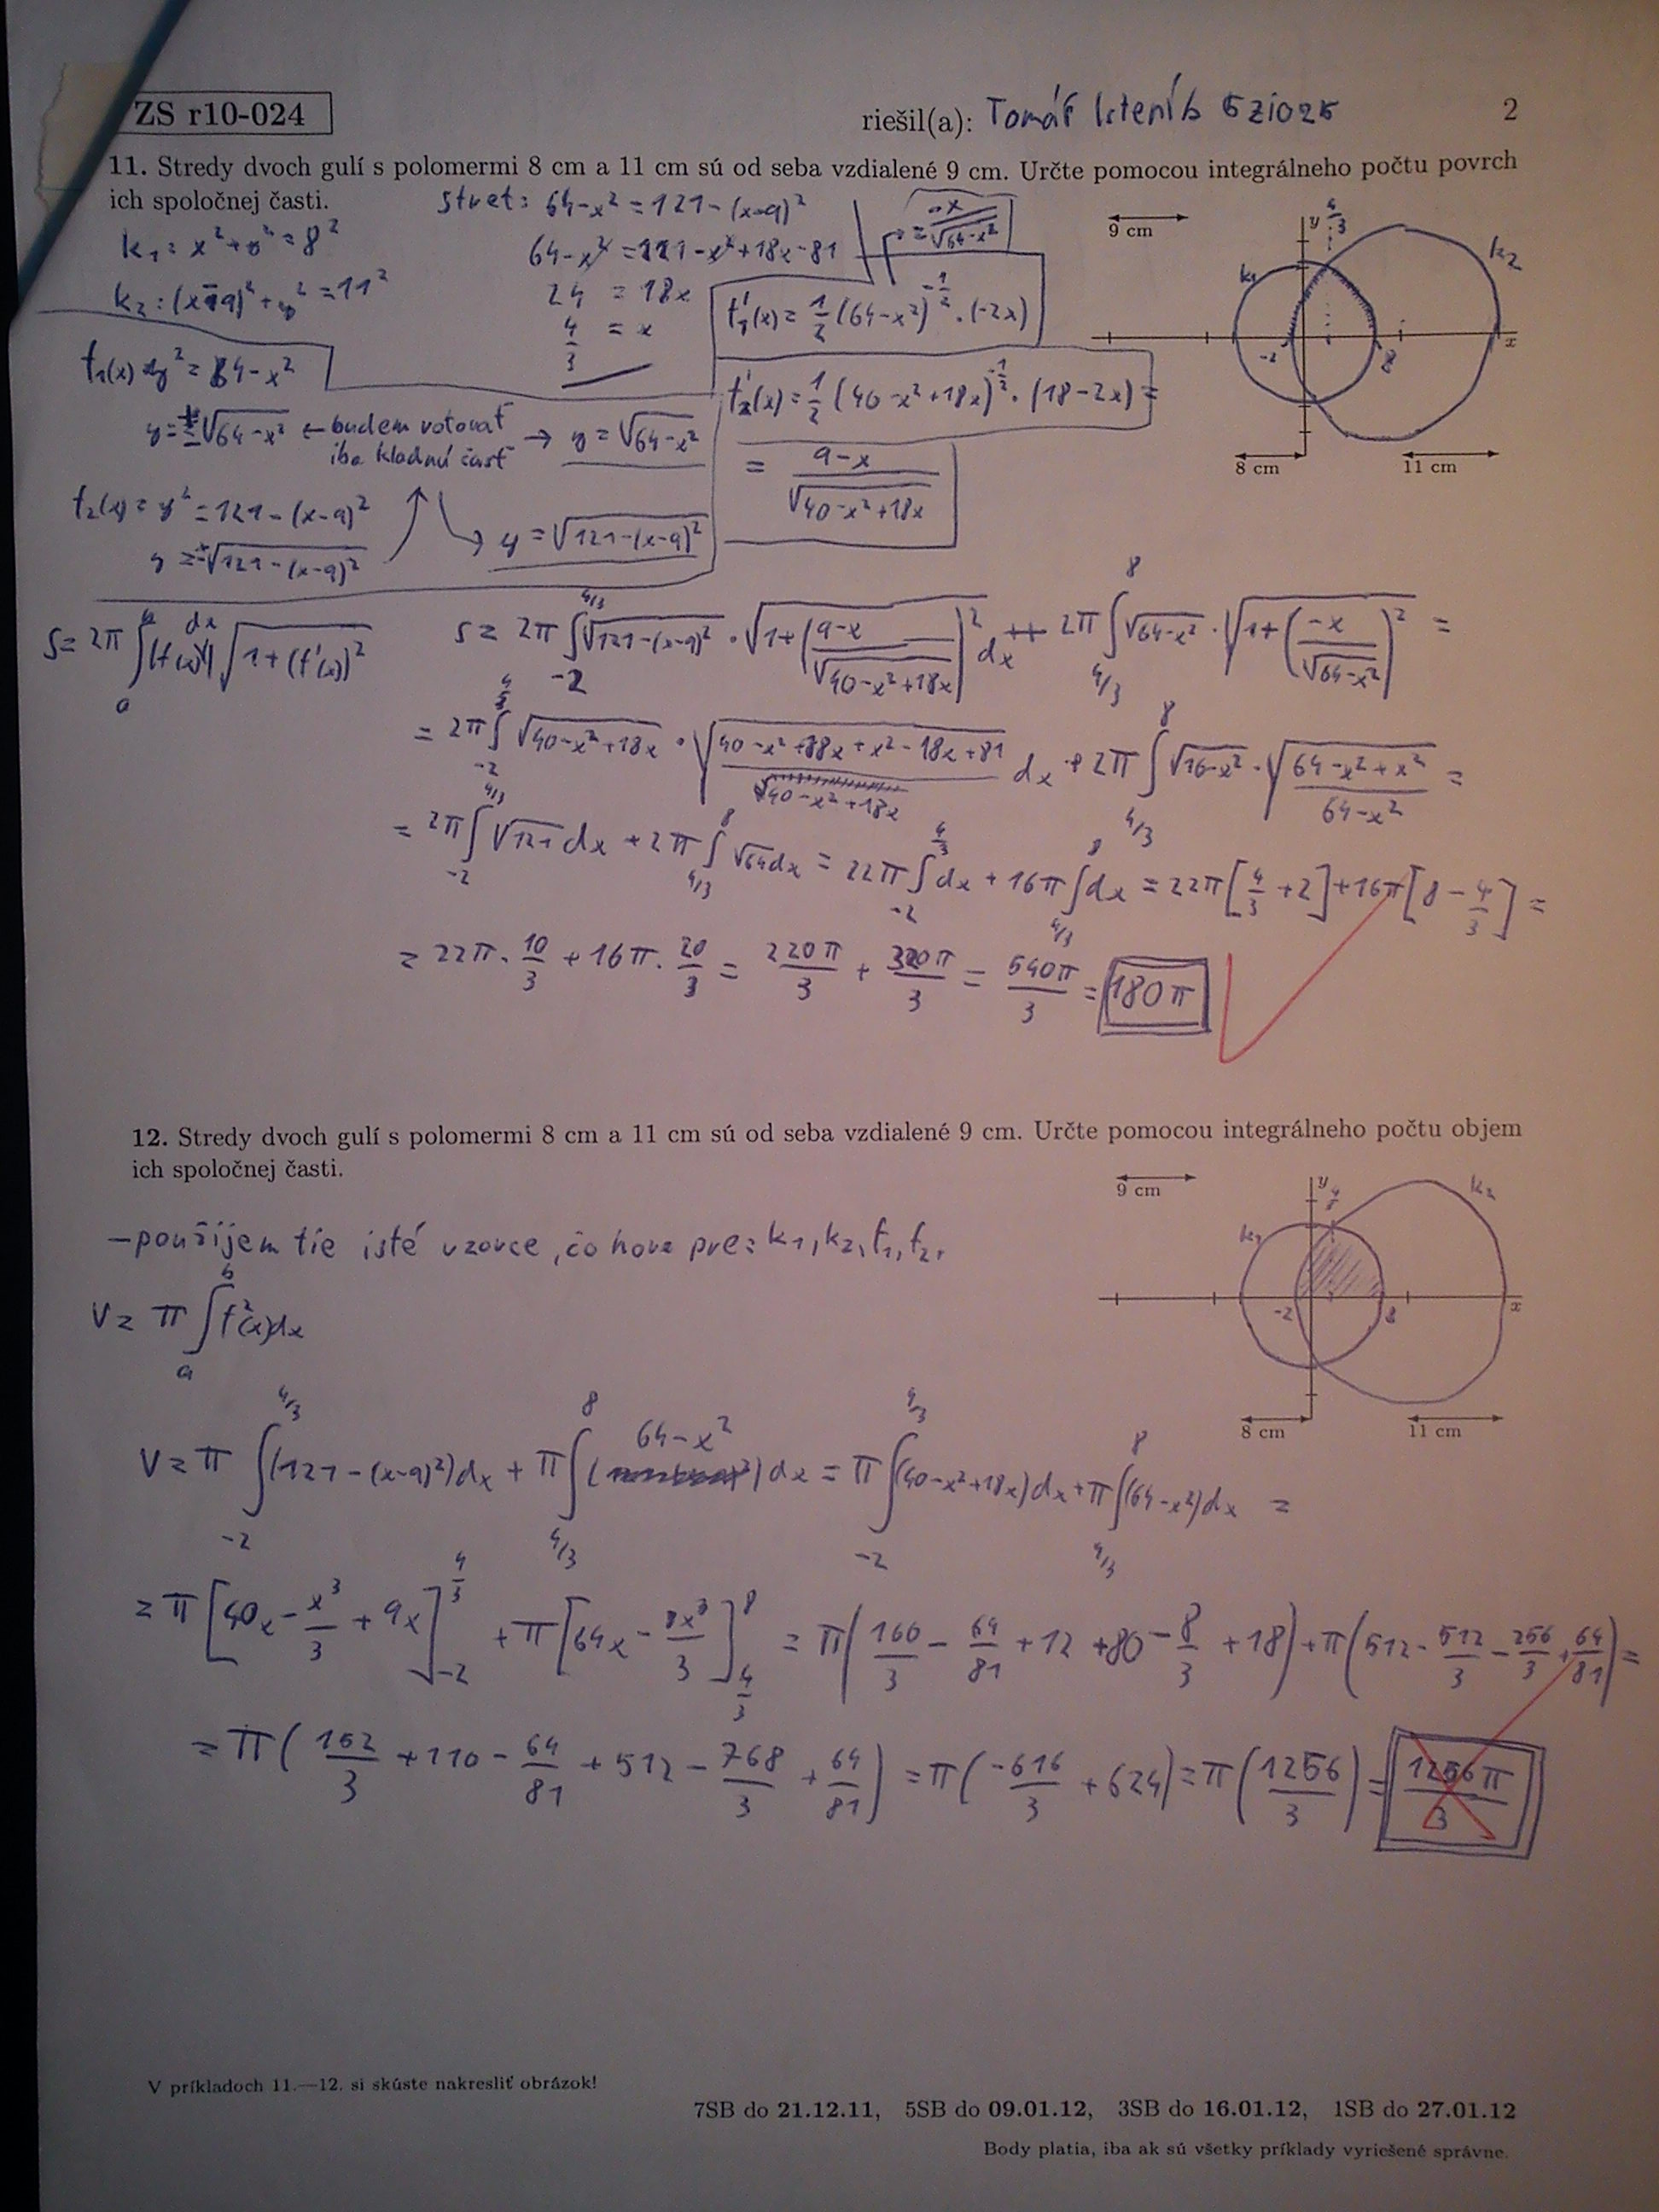 ZS r10-024
riešil(a): Tomáš
2
11. Stredy dvoch gulí s polomermi 8 cm a 11 cm sú od seba vzdialené 9 cm. Určte pomocou integrálneho počtu povrch
ich spoločnej časti.
stret: 64-x² = 121-(x-9)²
k₁: x²+y² = 8²
64-x² = 121-x²+18x-81
k₂: (x-9)²+y² = 11²
24 = 18x
4/3 = x
= -x/√(64-x²)
f₁'(x) = 1/2 (64-x²)^(-1/2) · (-2x)
9 cm
y
4/3
k₁
k₂
-2
8
x
8 cm
11 cm
f₁(x) = y² = 64-x²
y = ±√(64-x²) ← budem rotovať iba kladnú časť → y = √(64-x²)
f₂'(x) = 1/2 (40-x²+18x)^(-1/2) · (18-2x) =
= (9-x)/√(40-x²+18x)
f₂(x) = y² = 121-(x-9)²
y = ±√(121-(x-9)²)
y = √(121-(x-9)²)
S = 2π ∫_a^b |f(x)| √(1+(f'(x))²) dx
S = 2π ∫_{-2}^{4/3} √(121-(x-9)²) · √(1+((9-x)/√(40-x²+18x))²) dx + 2π ∫_{4/3}^8 √(64-x²) · √(1+(-x/√(64-x²))²) =
= 2π ∫_{-2}^{4/3} √(40-x²+18x) · √((40-x²+18x+x²-18x+81)/(40-x²+18x)) dx + 2π ∫_{4/3}^8 √(16-x²) · √((64-x²+x²)/(64-x²)) =
= 2π ∫_{-2}^{4/3} √121 dx + 2π ∫_{4/3}^8 √64 dx = 22π ∫_{-2}^{4/3} dx + 16π ∫_{4/3}^8 dx = 22π [4/3 + 2] + 16π [8 - 4/3] =
= 22π · 10/3 + 16π · 20/3 = 220π/3 + 320π/3 = 540π/3 = 180π
12. Stredy dvoch gulí s polomermi 8 cm a 11 cm sú od seba vzdialené 9 cm. Určte pomocou integrálneho počtu objem
ich spoločnej časti.
9 cm
y
k₁
k₂
-2
8
x
8 cm
11 cm
- použijem tie isté vzorce, čo hore pre: k₁, k₂, f₁, f₂.
V = π ∫_a^b f²(x)dx
V = π ∫_{-2}^{4/3} (121-(x-9)²)dx + π ∫_{4/3}^8 (64-x²) dx = π ∫_{-2}^{4/3} (40-x²+18x)dx + π ∫_{4/3}^8 (64-x²)dx =
= π [40x - x³/3 + 9x]_{-2}^{4/3} + π [64x - x³/3]_{4/3}^8 = π(160/3 - 64/81 + 12 + 80 - 8/3 + 18) + π(512 - 512/3 - 256/3 + 64/81) =
= π (152/3 + 110 - 64/81 + 512 - 768/3 + 64/81) = π (-616/3 + 624) = π (1256/3) = 1256π/3
V príkladoch 11.—12. si skúste nakresliť obrázok!
7SB do 21.12.11, 5SB do 09.01.12, 3SB do 16.01.12, 1SB do 27.01.12
Body platia, iba ak sú všetky príklady vyriešené správne.